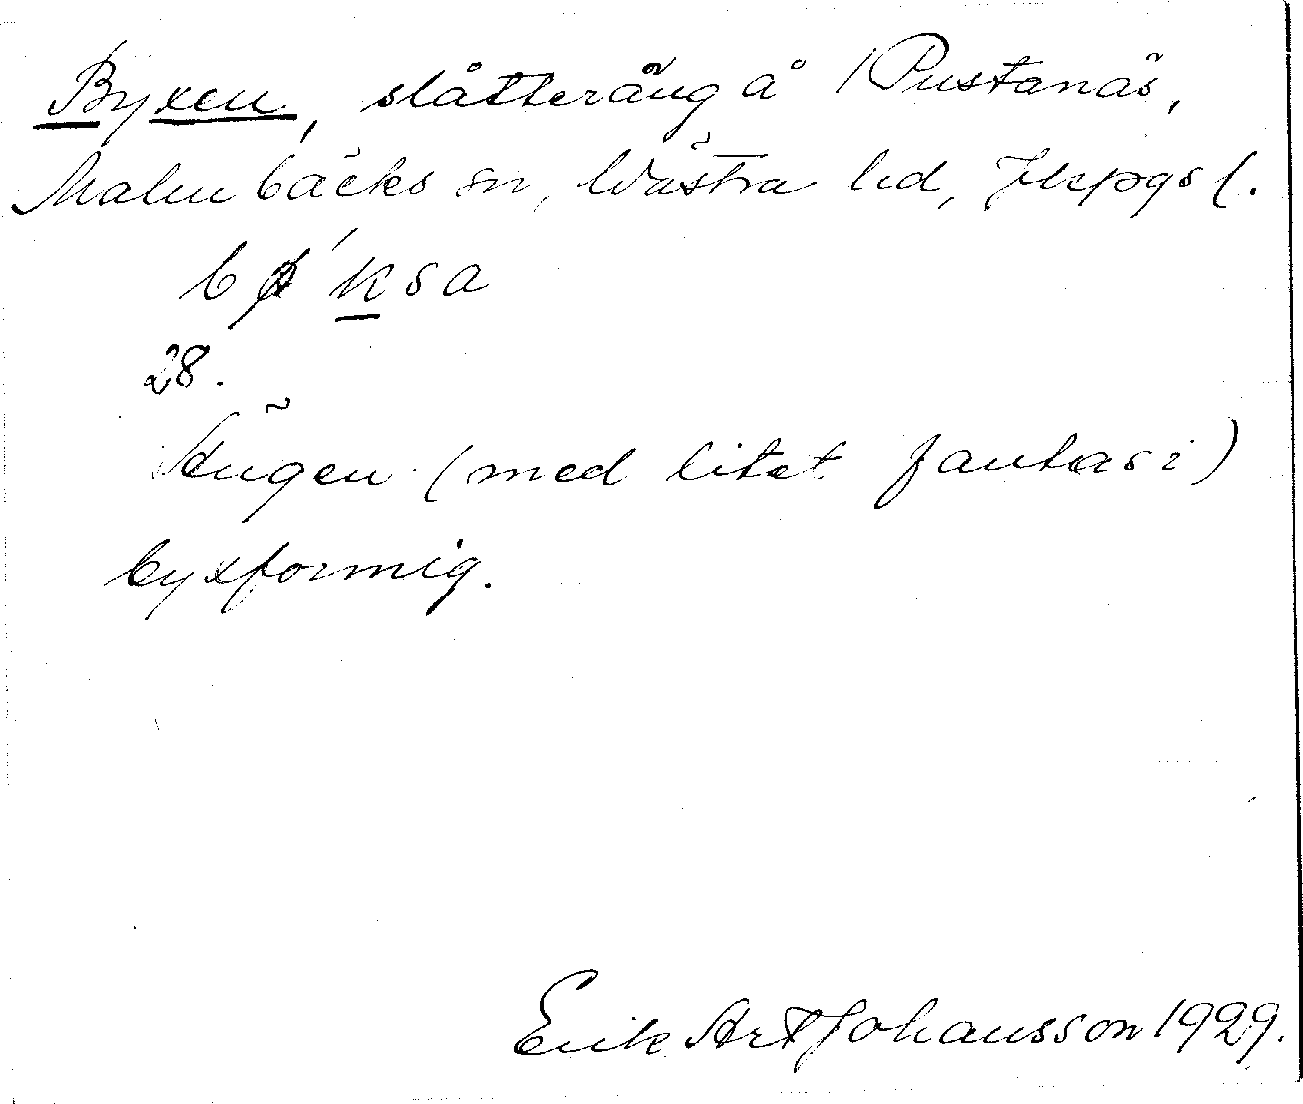 Byxen, slåtteräng å Pustanäs,
Malmbäcks sn, Västra hd, Jkpgs l.
bø´ksa
28.
Ängen (med litet fantasi)
byxformig.
Erik Art Johansson 1929.